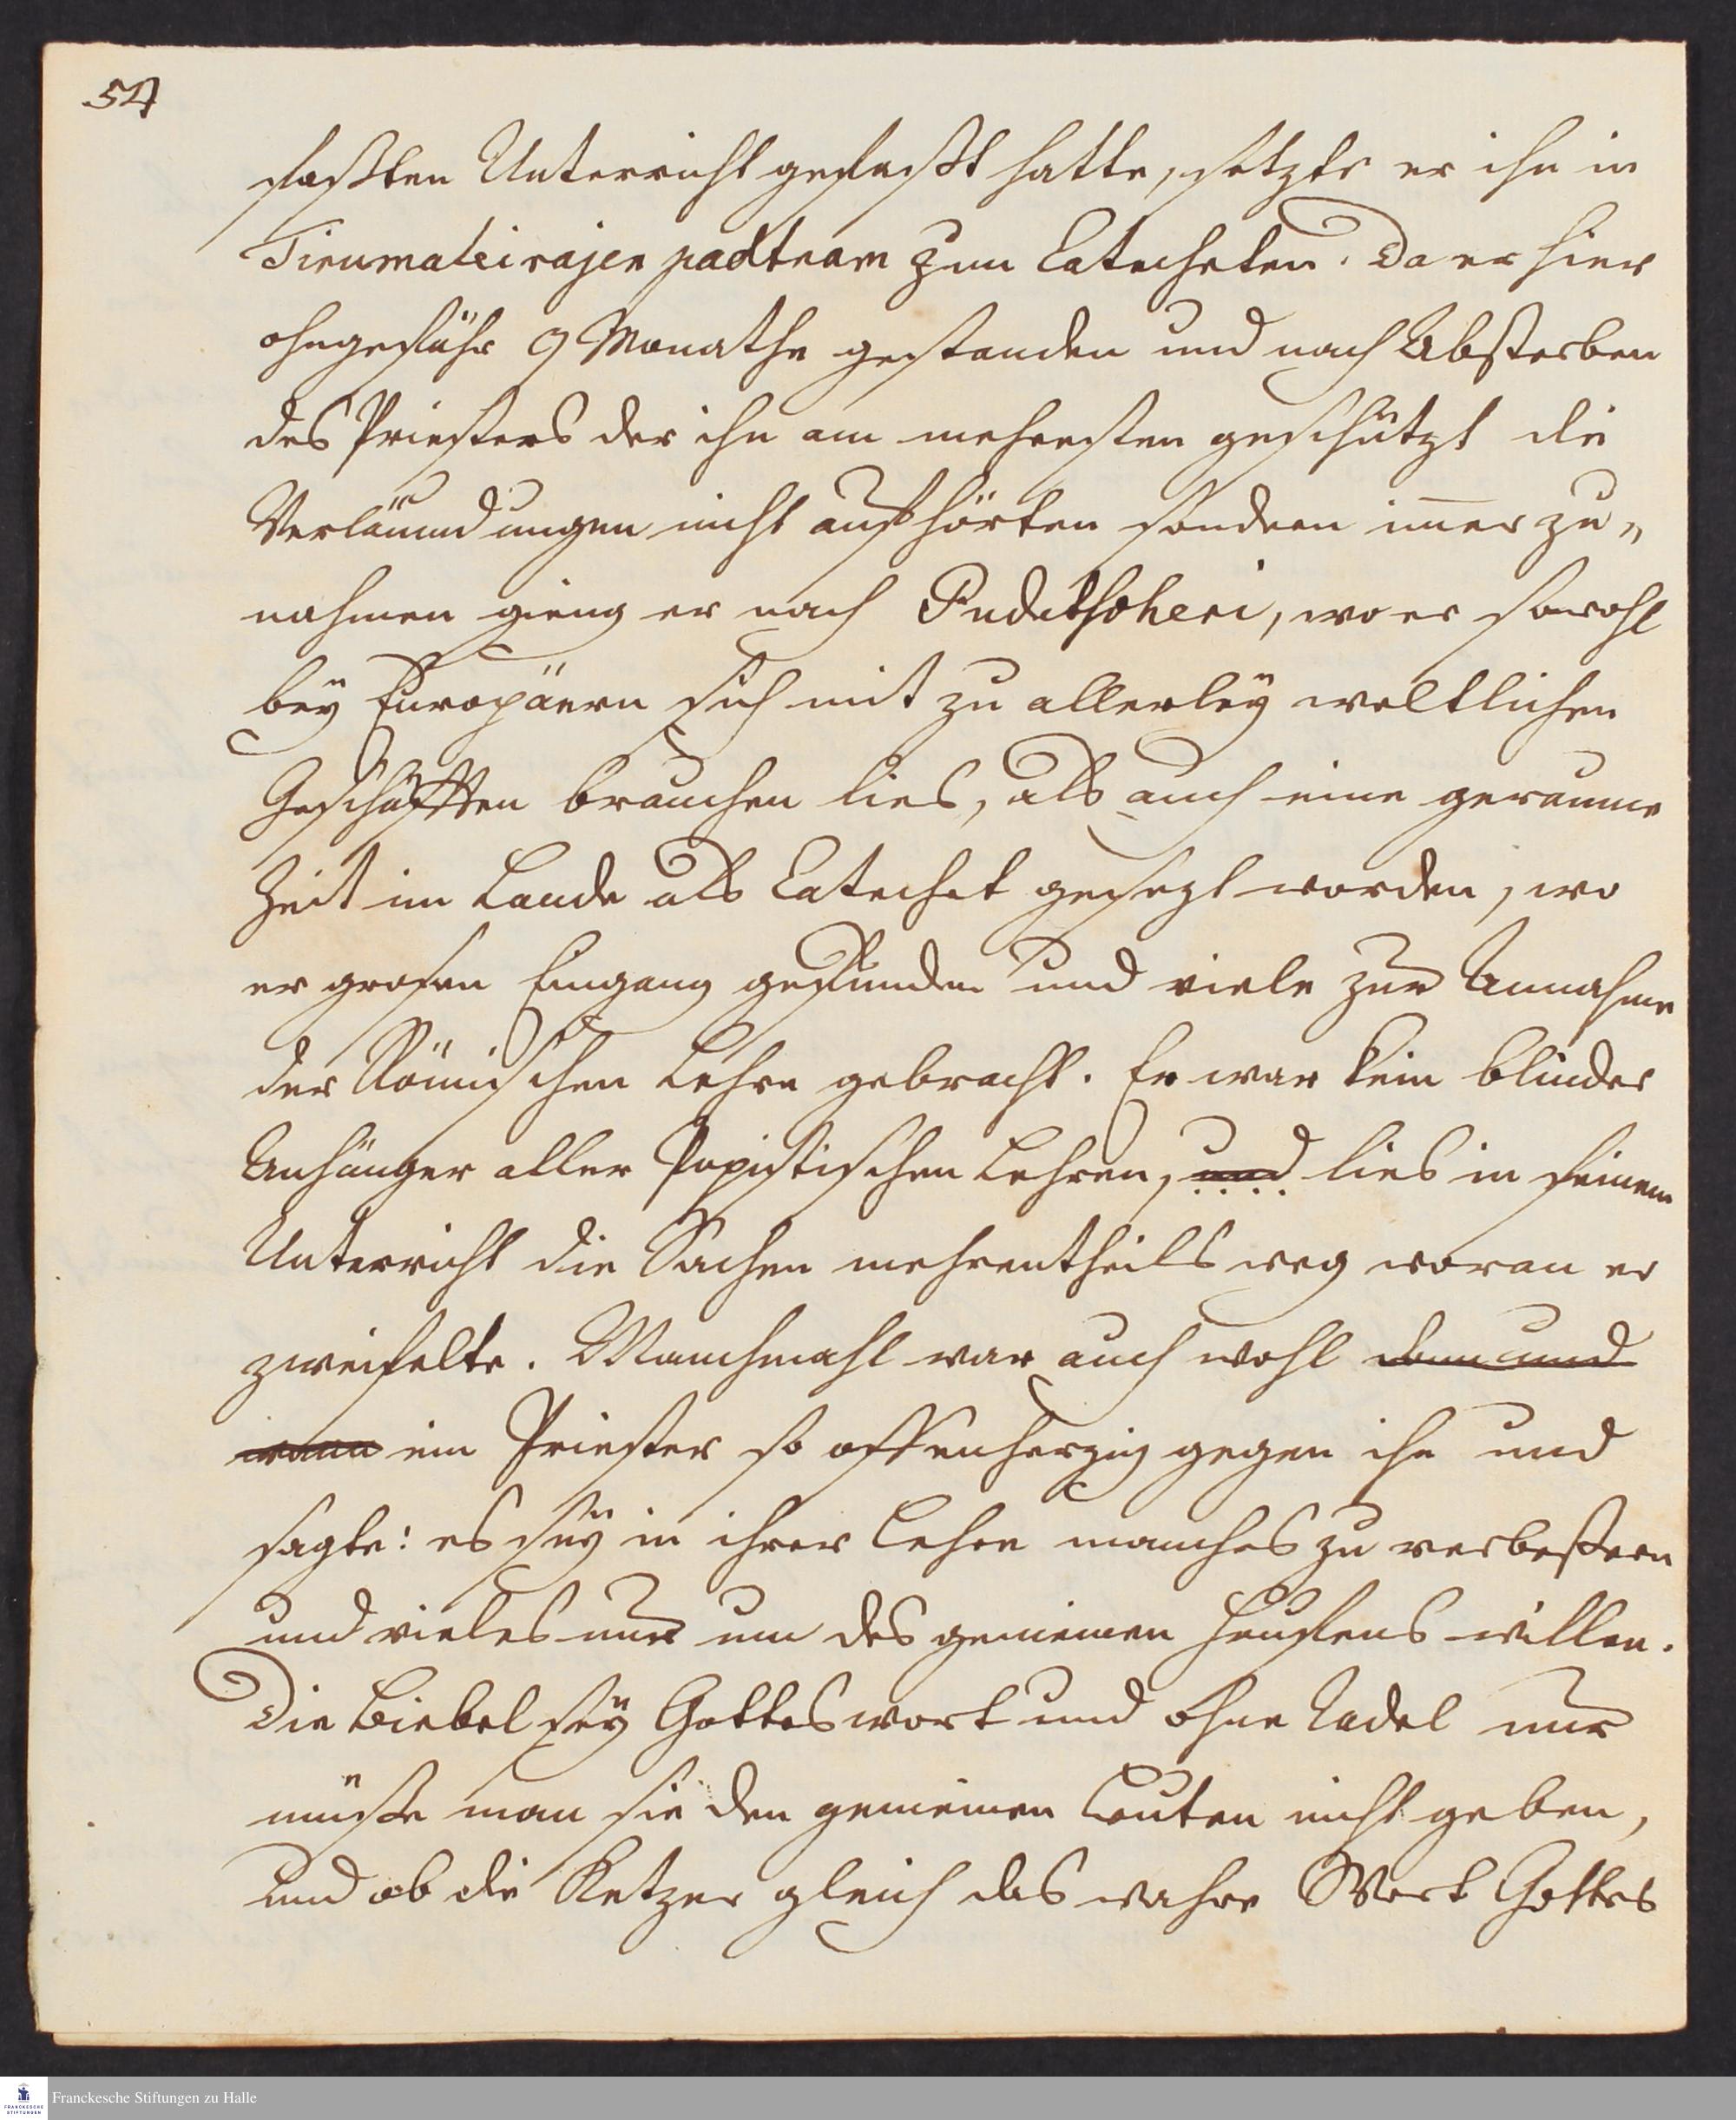 54
faßten Unterricht gefaßt hatte, setzte er ihn in
Tirumaleirajen padtnam zum Catecheten. Da er hier
ohngefähr 9 Monathe gestanden und nach Absterben
des Priesters der ihn am mehresten geschützt die
Verläumdungen nicht aufhörten sondern im̅er zu„
nahmen gieng er nach Pudutscheri, wo er sowohl
bey Europäern sich mit zu allerley weltlichen
Geschäfften brauchen lies, als auch eine geraume
Zeit im Lande als Catechet gesezt worden, wo
er grosen Eingang gefunden und viele zur Annahme
der Römischen Lehre gebracht. Er war kein blinder
Anhänger aller Papistischen Lehren, und lies in seinem
Unterricht die Sachen mehrentheils weg woran er
zweifelte. Manchmahl war auch wohl dann und
wann ein Priester so offenherzig gegen ihn und
sagte: es sey in ihrer Lehre manches zu verbeßern
und vieles nur um des gemeinen Haufens willen.
Die Biebel sey Gottes wort und ohne Tadel nur
müsse man sie den gemeinen Leuten nicht geben,
und ob die Ketzer gleich das wahre Wort Gottes
Franckesche Stiftungen zu Halle
FRANCKESCHE
STIFTUNGEN